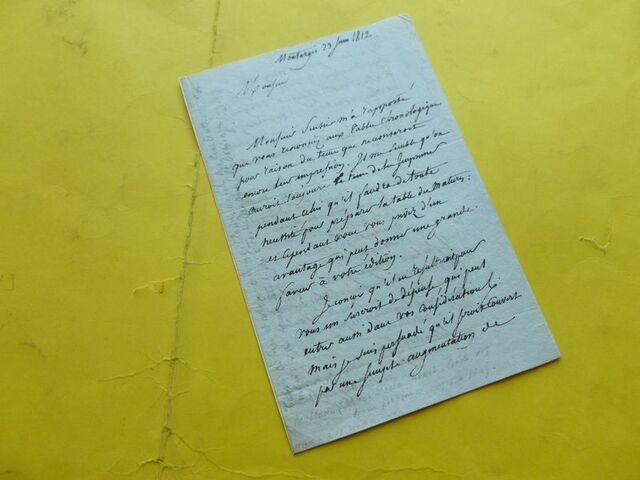 Montargis 23 Juin 1812.
Monsieur
Monsieur m'a rapporté
que vous renonciez aux Table chronologique
pour raison du tems que nécessiteroit
encore leur impression. Il me semble qu'on
auroit toujours le tems de les imprimer
pendant celui qu'il faudra de toute
necessité pour préparer la table des matieres:
et cependant vous vous privez d'un
avantage qui peut donner une grande
faveur à votre édition.
Je conçois qu'il en résulteroit pour
vous un surcroit de dépense qui peut
entrer aussi dans vos considérations
mais je suis persuadé qu'il seroit couvert
par une simple augmentation de